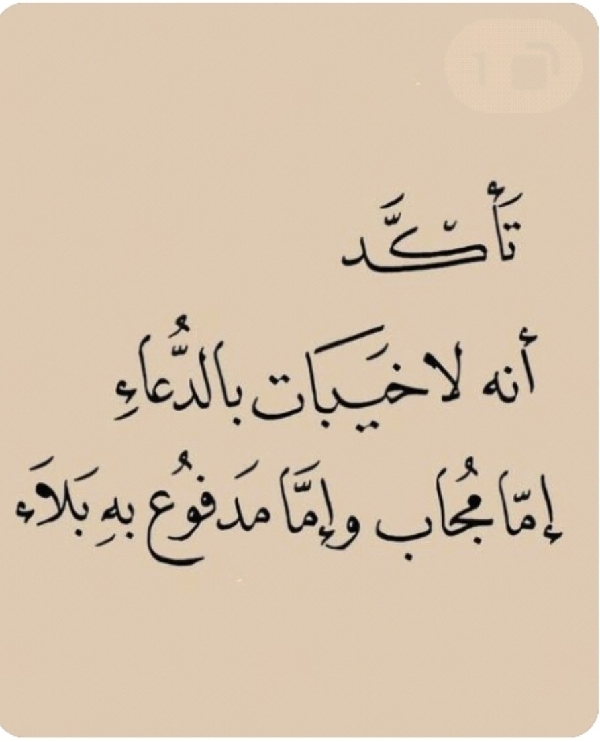 تَأكَّد
أنه لا خَيبَات بالدُّعاءِ
إمّا مُجاب وإمَّا مَدفوُع بهِ بَلاَء